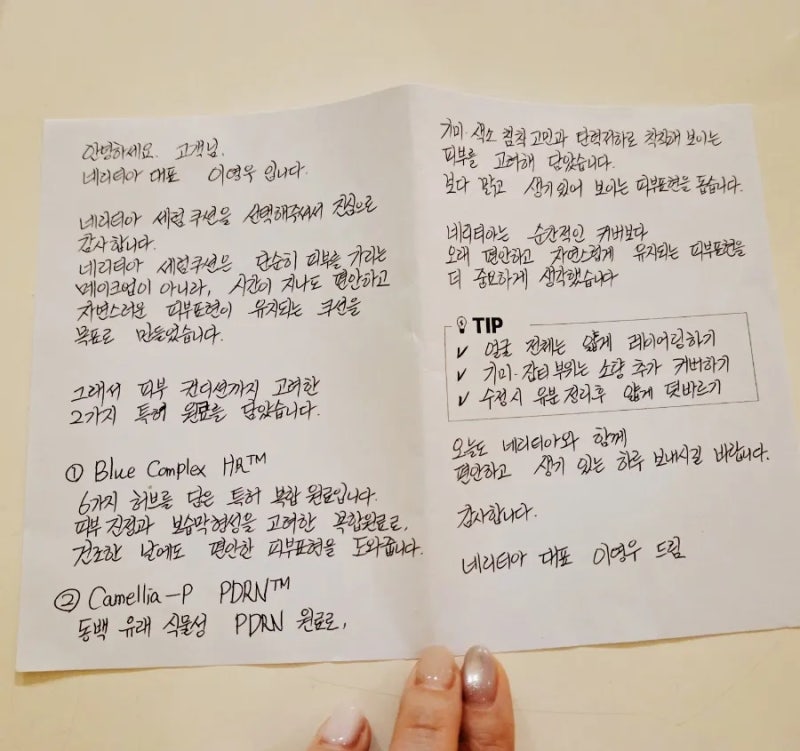 안녕하세요. 고객님.
네리티아 대표 이영우 입니다.
네리티아 세럼쿠션을 선택해주셔서 진심으로
감사합니다.
네리티아 세럼쿠션은 단순히 피부를 가리는
메이크업이 아니라, 시간이 지나도 편안하고
자연스러운 피부표현이 유지되는 쿠션을
목표로 만들었습니다.
그래서 피부 컨디션까지 고려한
2가지 특허 원료를 담았습니다.
① Blue Complex HR™
6가지 허브를 담은 특허 복합 원료입니다.
피부 진정과 보습막형성을 고려한 복합원료로,
건조한 날에도 편안한 피부표현을 도와줍니다.
② Camellia-P PDRN™
동백 유래 식물성 PDRN 원료로,
기미·색소 침착 고민과 탄력저하로 칙칙해 보이는
피부를 고려해 담았습니다.
보다 맑고 생기있어 보이는 피부표현을 돕습니다.
네리티아는 순간적인 커버보다
오래 편안하고 자연스럽게 유지되는 피부표현을
더 중요하게 생각했습니다
TIP
✓ 얼굴 전체는 얇게 레이어링하기
✓ 기미·잡티부위는 소량 추가 커버하기
✓ 수정시 유분 정리후 얇게 덧바르기
오늘도 네리티아와 함께
편안하고 생기 있는 하루 보내시길 바랍니다.
감사합니다.
네리티아 대표 이영우 드림